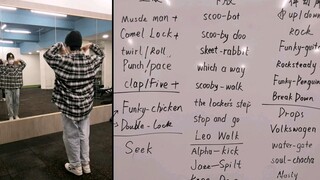 Muscle man +
Camel Lock +
twirl/Roll.
Punch/pace
clap/Five +
Funky-chicken
Double-Lock
Seek
scoo-bot
scoo-by doo
skeet-rabbit
which a way
scooby-walk
the locker's stop
stop and go
Leo Walk
Alpha-kick
Jazz-Split
up/down
Rock
Funky-guitar
Rocksteady
Funky-Penguin
Break Down
Drops
Volkswagen
water-gate
soul-chacha
Nasty